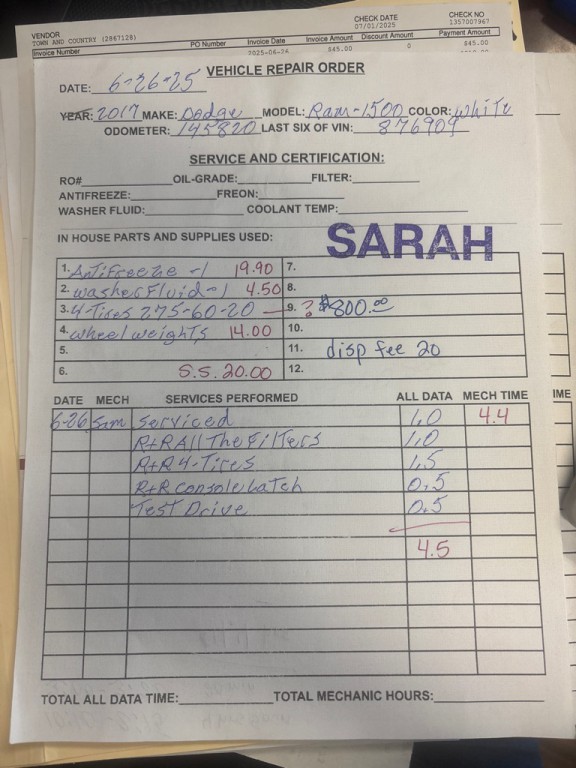 CHECK DATE
CHECK NO
VENDOR
07/01/2025
1357007967
TOWN AND COUNTRY (2867128)
Invoice Number PO Number Invoice Date Invoice Amount Discount Amount Payment Amount
2025-06-26 $45.00 0 $45.00
VEHICLE REPAIR ORDER
DATE: 6-26-25
YEAR: 2017 MAKE: Dodge MODEL: Ram-1500 COLOR: White
ODOMETER: 145820 LAST SIX OF VIN: 876909
SERVICE AND CERTIFICATION:
RO# OIL-GRADE: FILTER:
ANTIFREEZE: FREON:
WASHER FLUID: COOLANT TEMP:
IN HOUSE PARTS AND SUPPLIES USED:
SARAH
1. Antifreeze -1 19.90 7.
2. washer Fluid -1 4.50 8.
3. 4 Tires 275-60-20 — 9. ? $800.00
4. wheel weights 14.00 10.
5. 11. disp fee 20
6. S.S. 20.00 12.
DATE MECH SERVICES PERFORMED ALL DATA MECH TIME
IME
6-26 Sam Serviced 1.0 4.4
R+R All The Filters 1.0
R+R 4-Tires 1.5
R+R console Latch 0.5
Test Drive 0.5
4.5
TOTAL ALL DATA TIME: TOTAL MECHANIC HOURS: